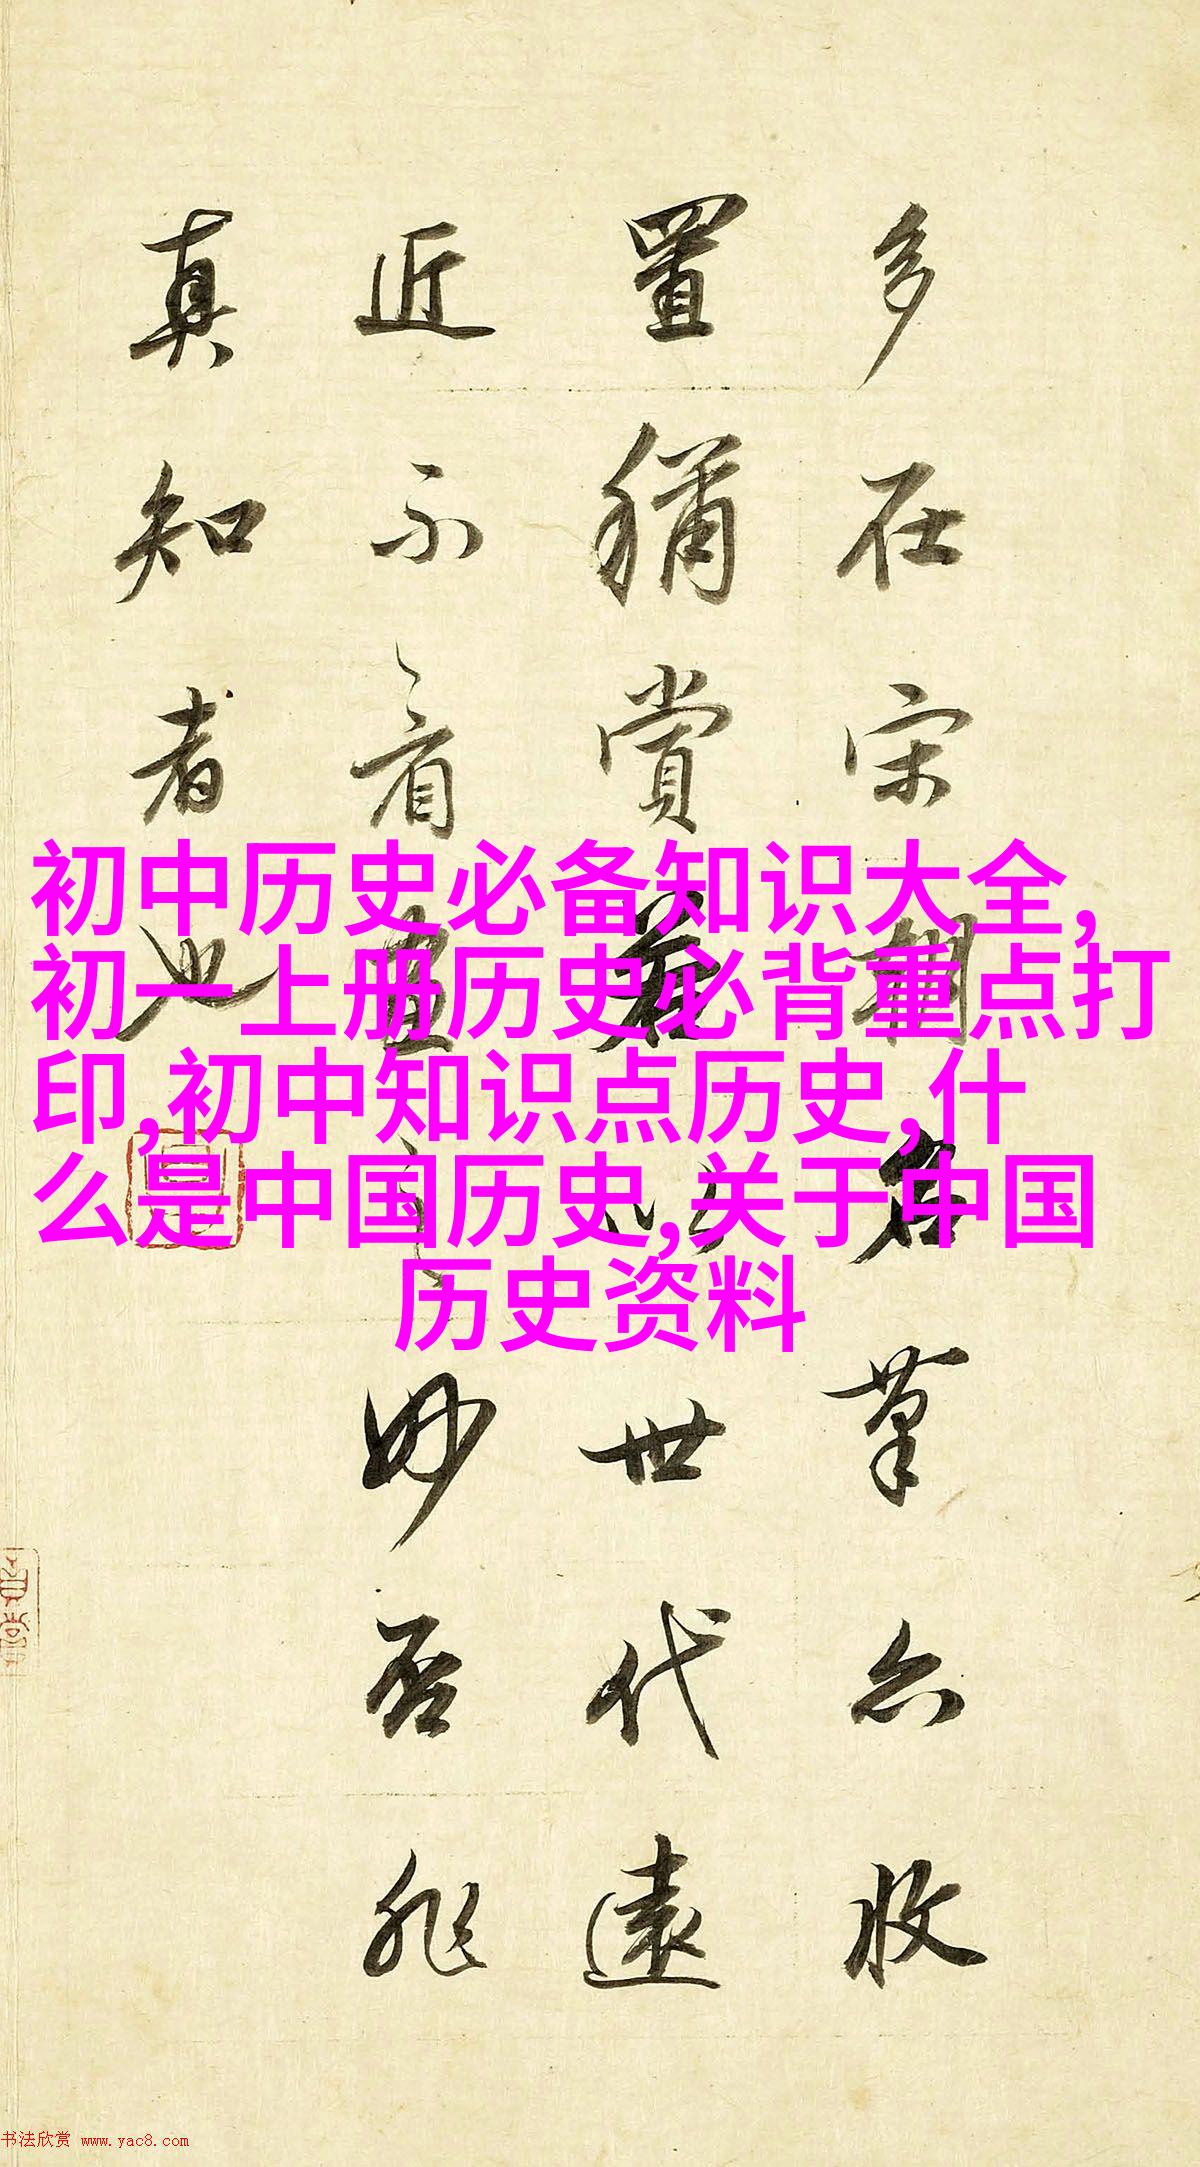 多在宋朝名筆亦收
置稱賞若以世代遠
近不看畫之妙否非
真知者也
初中历史必备知识大全,
初一上册历史必背重点打
印,初中知识点历史,什
么是中国历史,关于中国
历史资料
书法欣赏 www.yac8.com